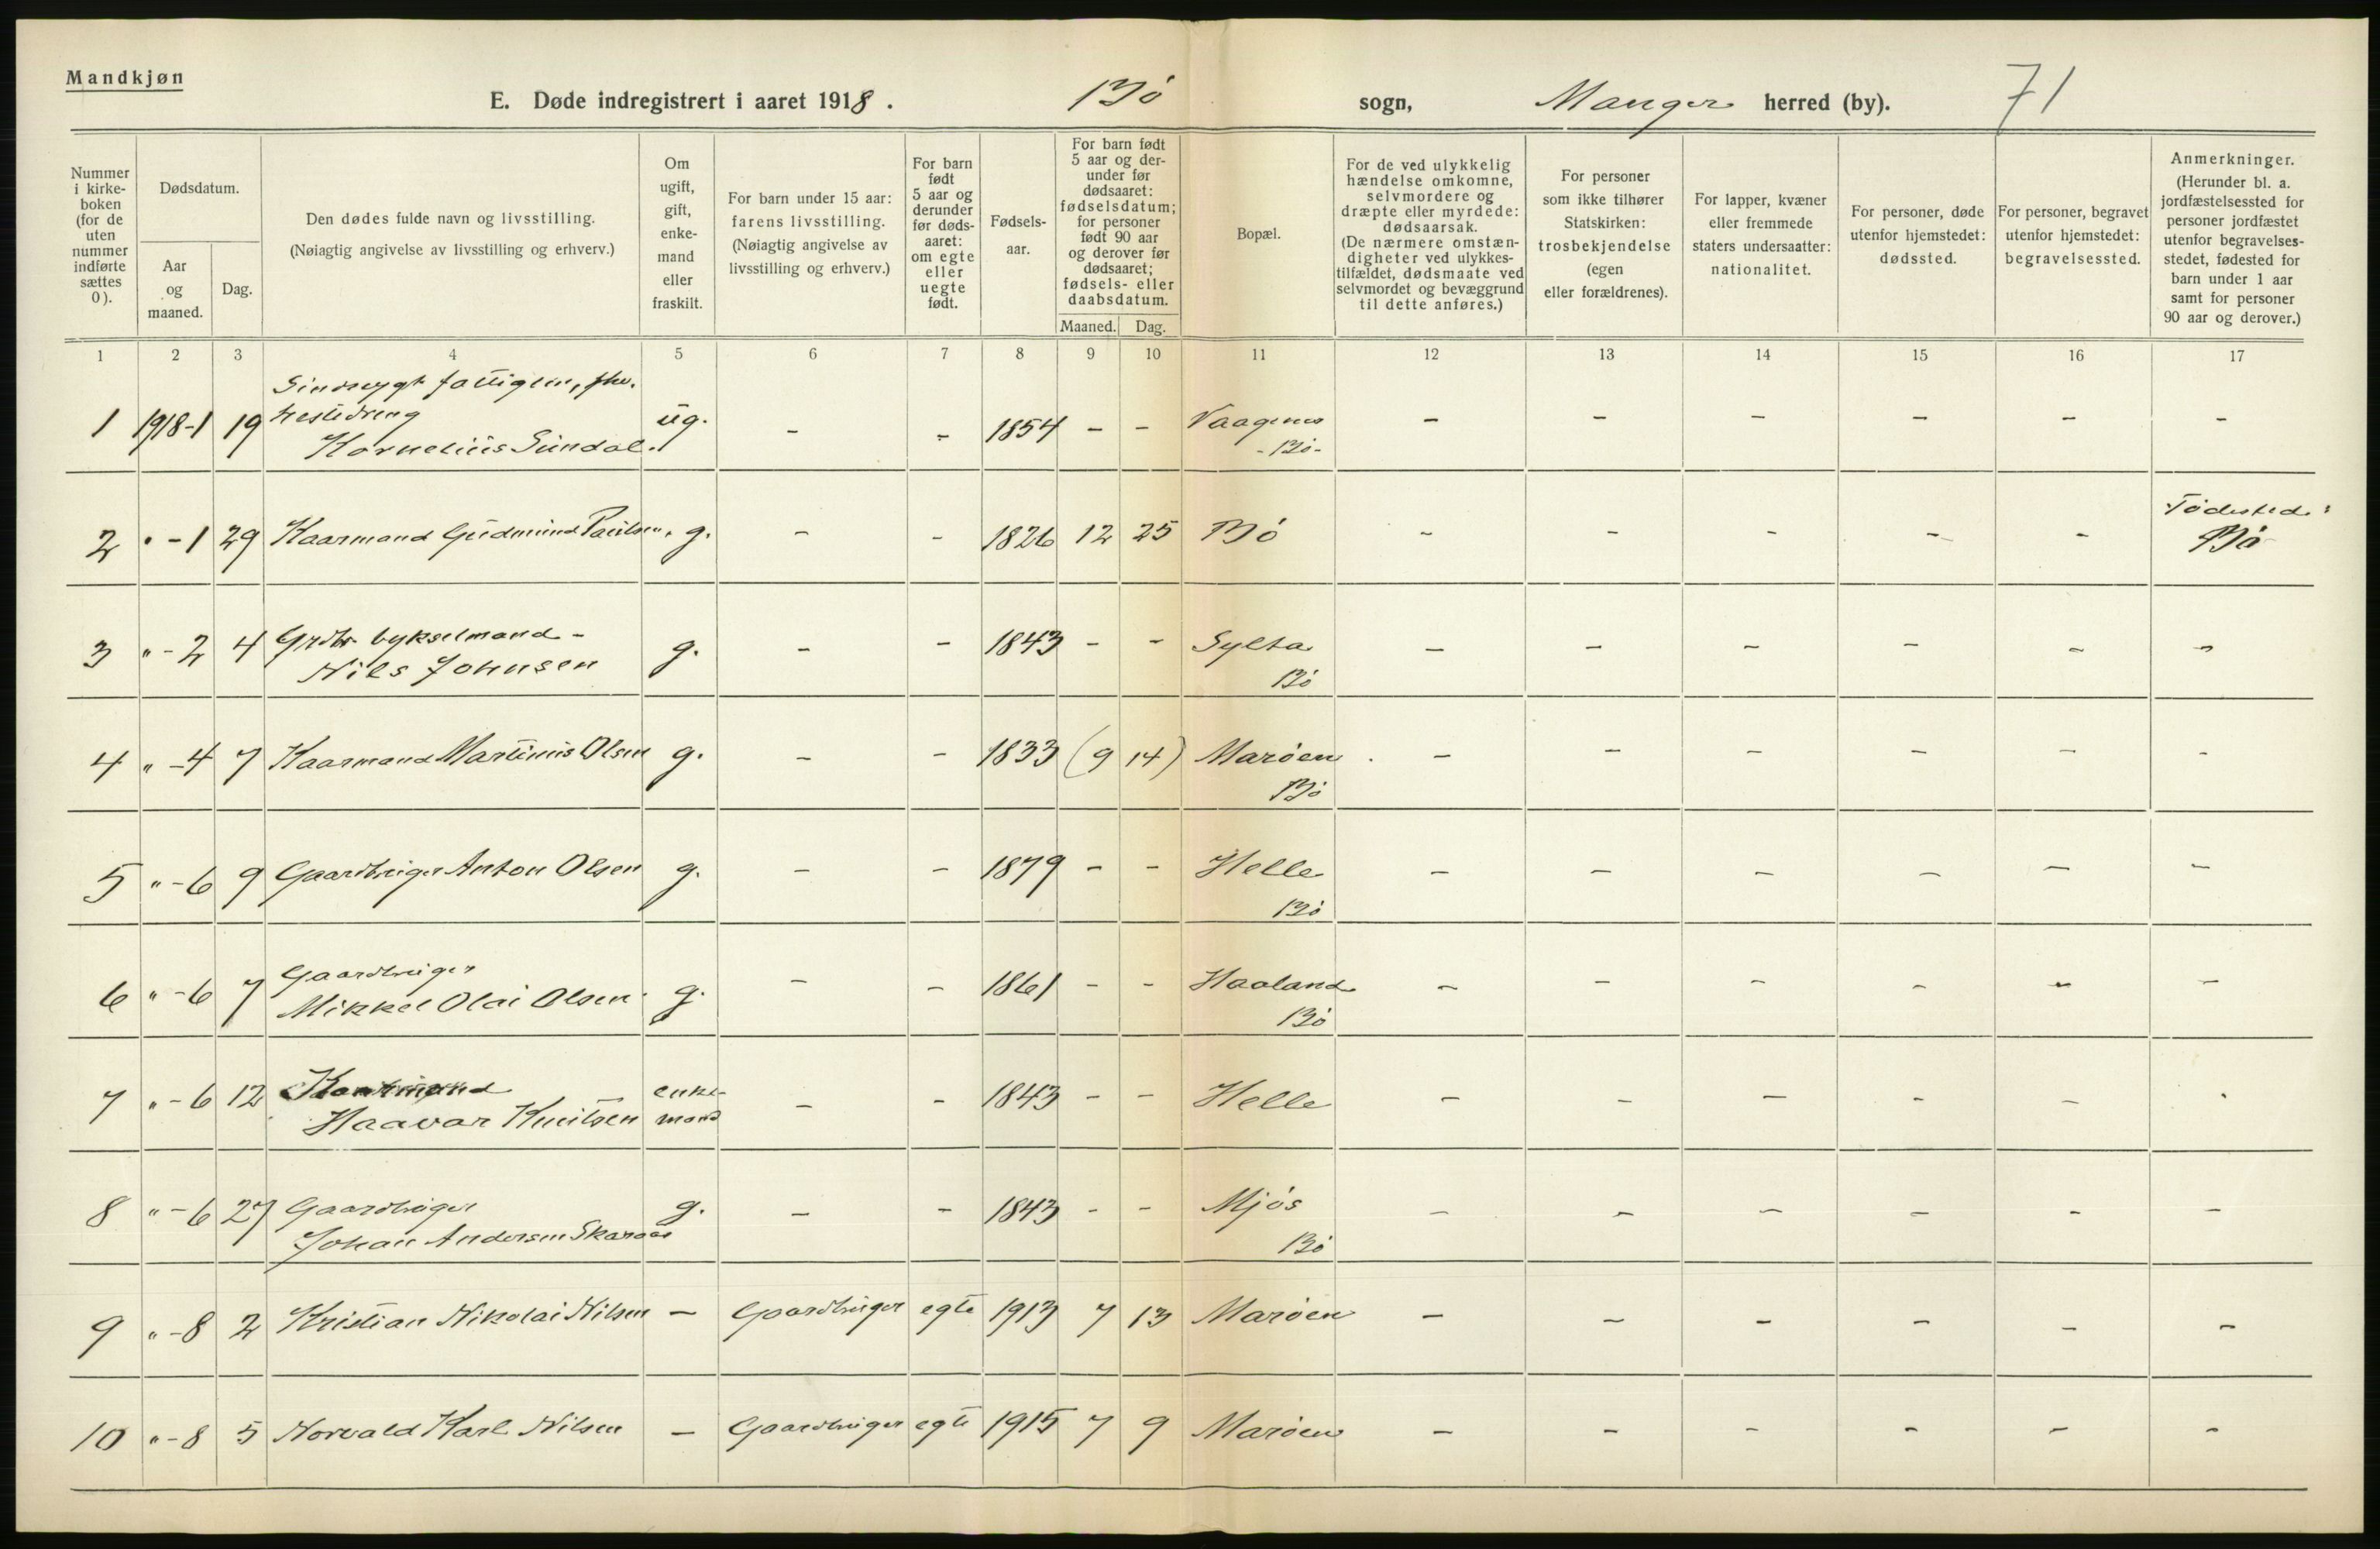 Mandkjøn
E. Døde indregistrert i aaret 1918. Bö sogn, Manger herred (by). 71
Nummer i kirkeboken (for de uten nummer indførte sættes 0).
Dødsdatum.
Aar og maaned.
Dag.
Den dødes fulde navn og livsstilling.
(Nøiagtig angivelse av livsstilling og erhverv.)
Om ugift, gift, enkemand eller fraskilt.
For barn under 15 aar: farens livsstilling.
(Nøiagtig angivelse av livsstilling og erhverv.)
For barn født 5 aar og derunder før dødsaaret: om egte eller uegte født.
Fødselsaar.
For barn født 5 aar og derunder før dødsaaret: fødselsdatum; for personer født 90 aar og derover før dødsaaret; fødsels- eller daabsdatum.
Maaned. Dag.
Bopæl.
For de ved ulykkelig hændelse omkomne, selvmordere og dræpte eller myrdede: dødsaarsak.
(De nærmere omstændigheter ved ulykkestilfældet, dødsmaate ved selvmordet og bevæggrund til dette anføres.)
For personer som ikke tilhører Statskirken: trosbekjendelse (egen eller forældrenes).
For lapper, kvæner eller fremmede staters undersaatter: nationalitet.
For personer, døde utenfor hjemstedet: dødssted.
For personer, begravet utenfor hjemstedet: begravelsessted.
Anmerkninger.
(Herunder bl. a. jordfæstelsessted for personer jordfæstet utenfor begravelsesstedet, fødested for barn under 1 aar samt for personer 90 aar og derover.)
1 2 3 4 5 6 7 8 9 10 11 12 13 14 15 16 17
Sindsygt fattiglem, fhv.
hestedreng
1 1918-1 19 Kornelius Sundal. ug. - - 1854 - - Vaagenes - - - - - -
- Bö -
2 " -1 29 Kaarmand Gudmund Paulsen. g. - - 1826 12 25 Bö - - - - - Födested: Bö
3 " -2 4 Grdbr bykselmand - g. - - 1843 - - Sylta - - - - - -
Nils Johnsen Bö
4 " -4 7 Kaarmand Martinus Olsen g. - - 1833 (9 14) Maröen - - - - - -
Bö
5 " -6 9 Gaardbruger Anton Olsen g. - - 1879 - - Helle - - - - - -
Bö
6 " -6 7 Gaardbruger g. - - 1861 - - Haaland - - - - - -
Mikkel Olai Olsen Bö
7 " -6 12 Kaarmand enke- - - 1843 - - Helle - - - - -
Haavar Knutsen mand
8 " -6 27 Gaardbruger g. - - 1843 - - Mjös - - - - - -
Johan Andersen Skaraas Bö
9 " -8 2 Kristian Nikolai Nilsen - Gaardbruger egte 1913 7 13 Maröen - - - - - -
10 " -8 5 Norvald Karl Nilsen - Gaardbruger egte 1915 7 9 Maröen - - - - - -